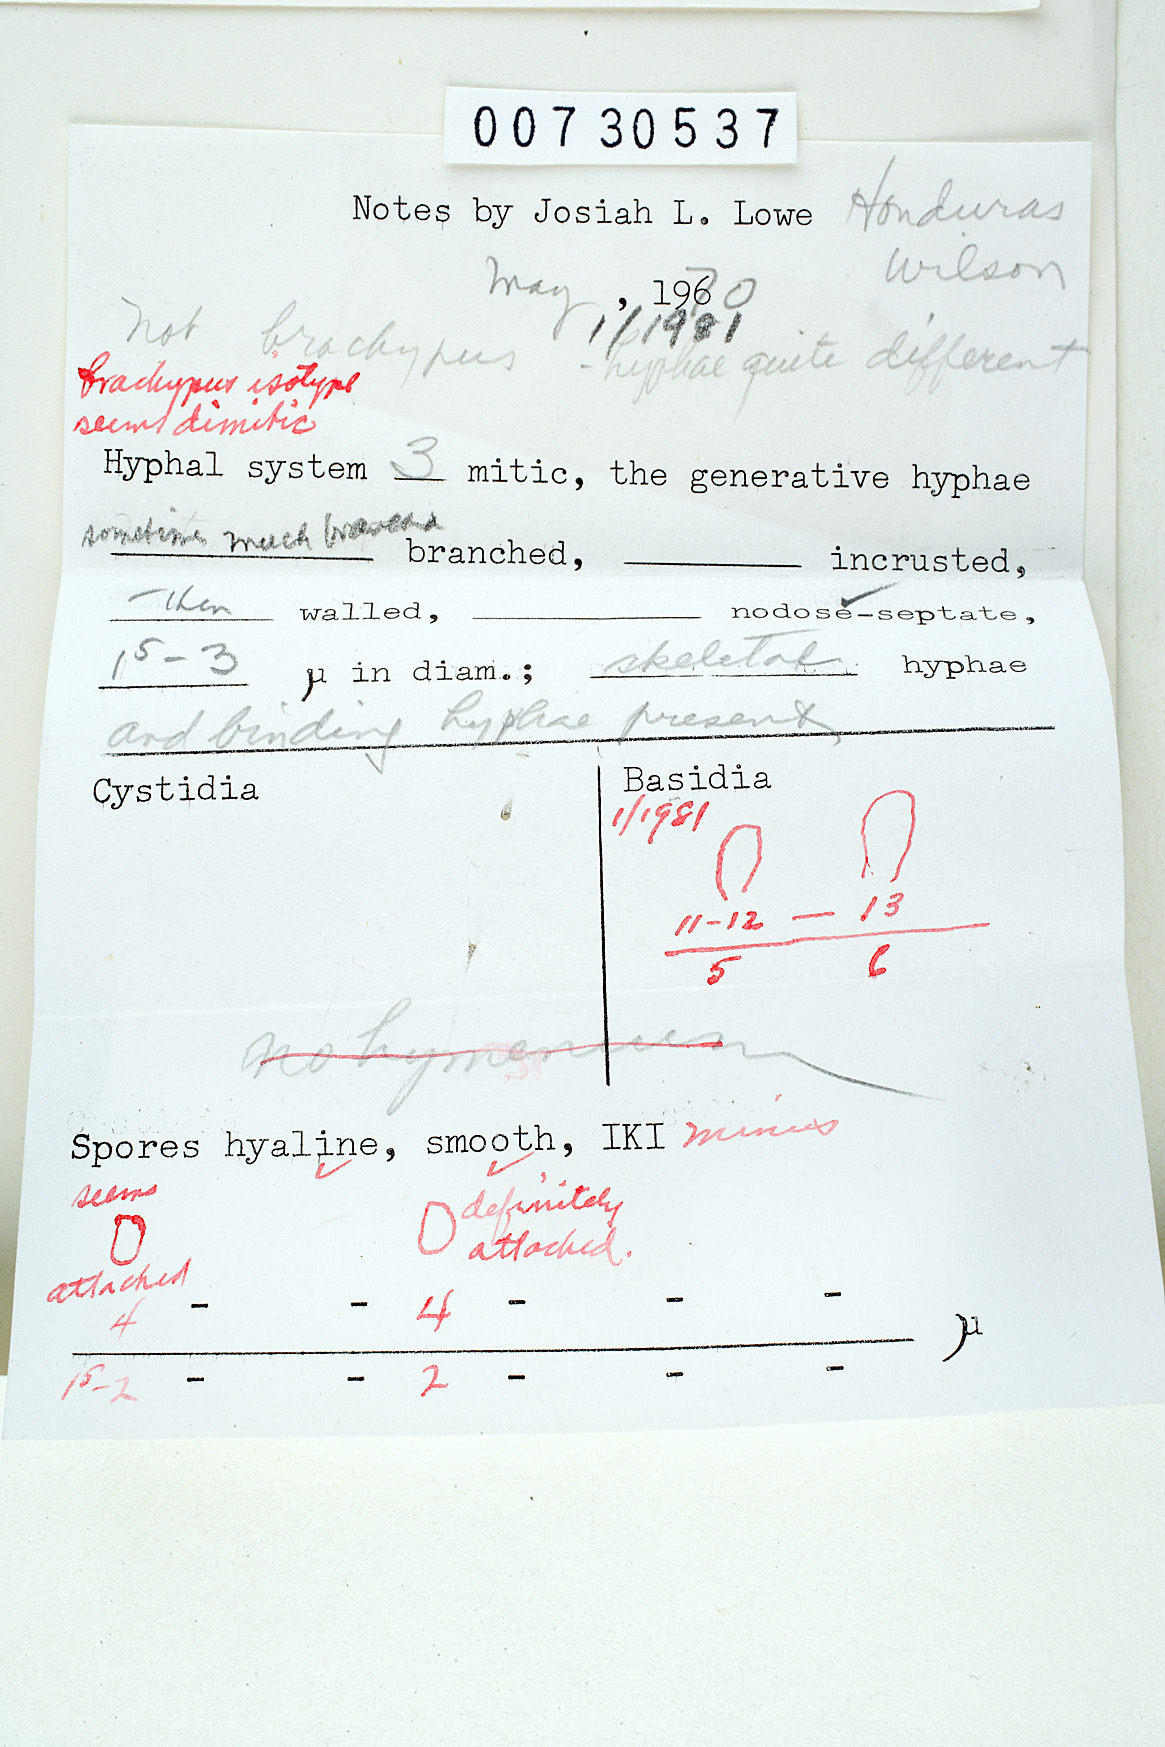 00730537
Notes by Josiah L. Lowe Honduras
Wilson
May , 1970
1/1981
Not brachypus - hyphae quite different
brachypus isotype
seems dimitic
Hyphal system 3 mitic, the generative hyphae
sometimes much branched branched, incrusted,
thin walled, nodose-septate,
15-3 μ in diam.; skeletal hyphae
and binding hyphae present
Cystidia Basidia
1/1981
11-12 — 13
5 6
no hymenium
Spores hyaline, smooth, IKI minus
seems definitely
attached attached.
4 - - 4 - - -
μ
15-2 - - 2 - - -